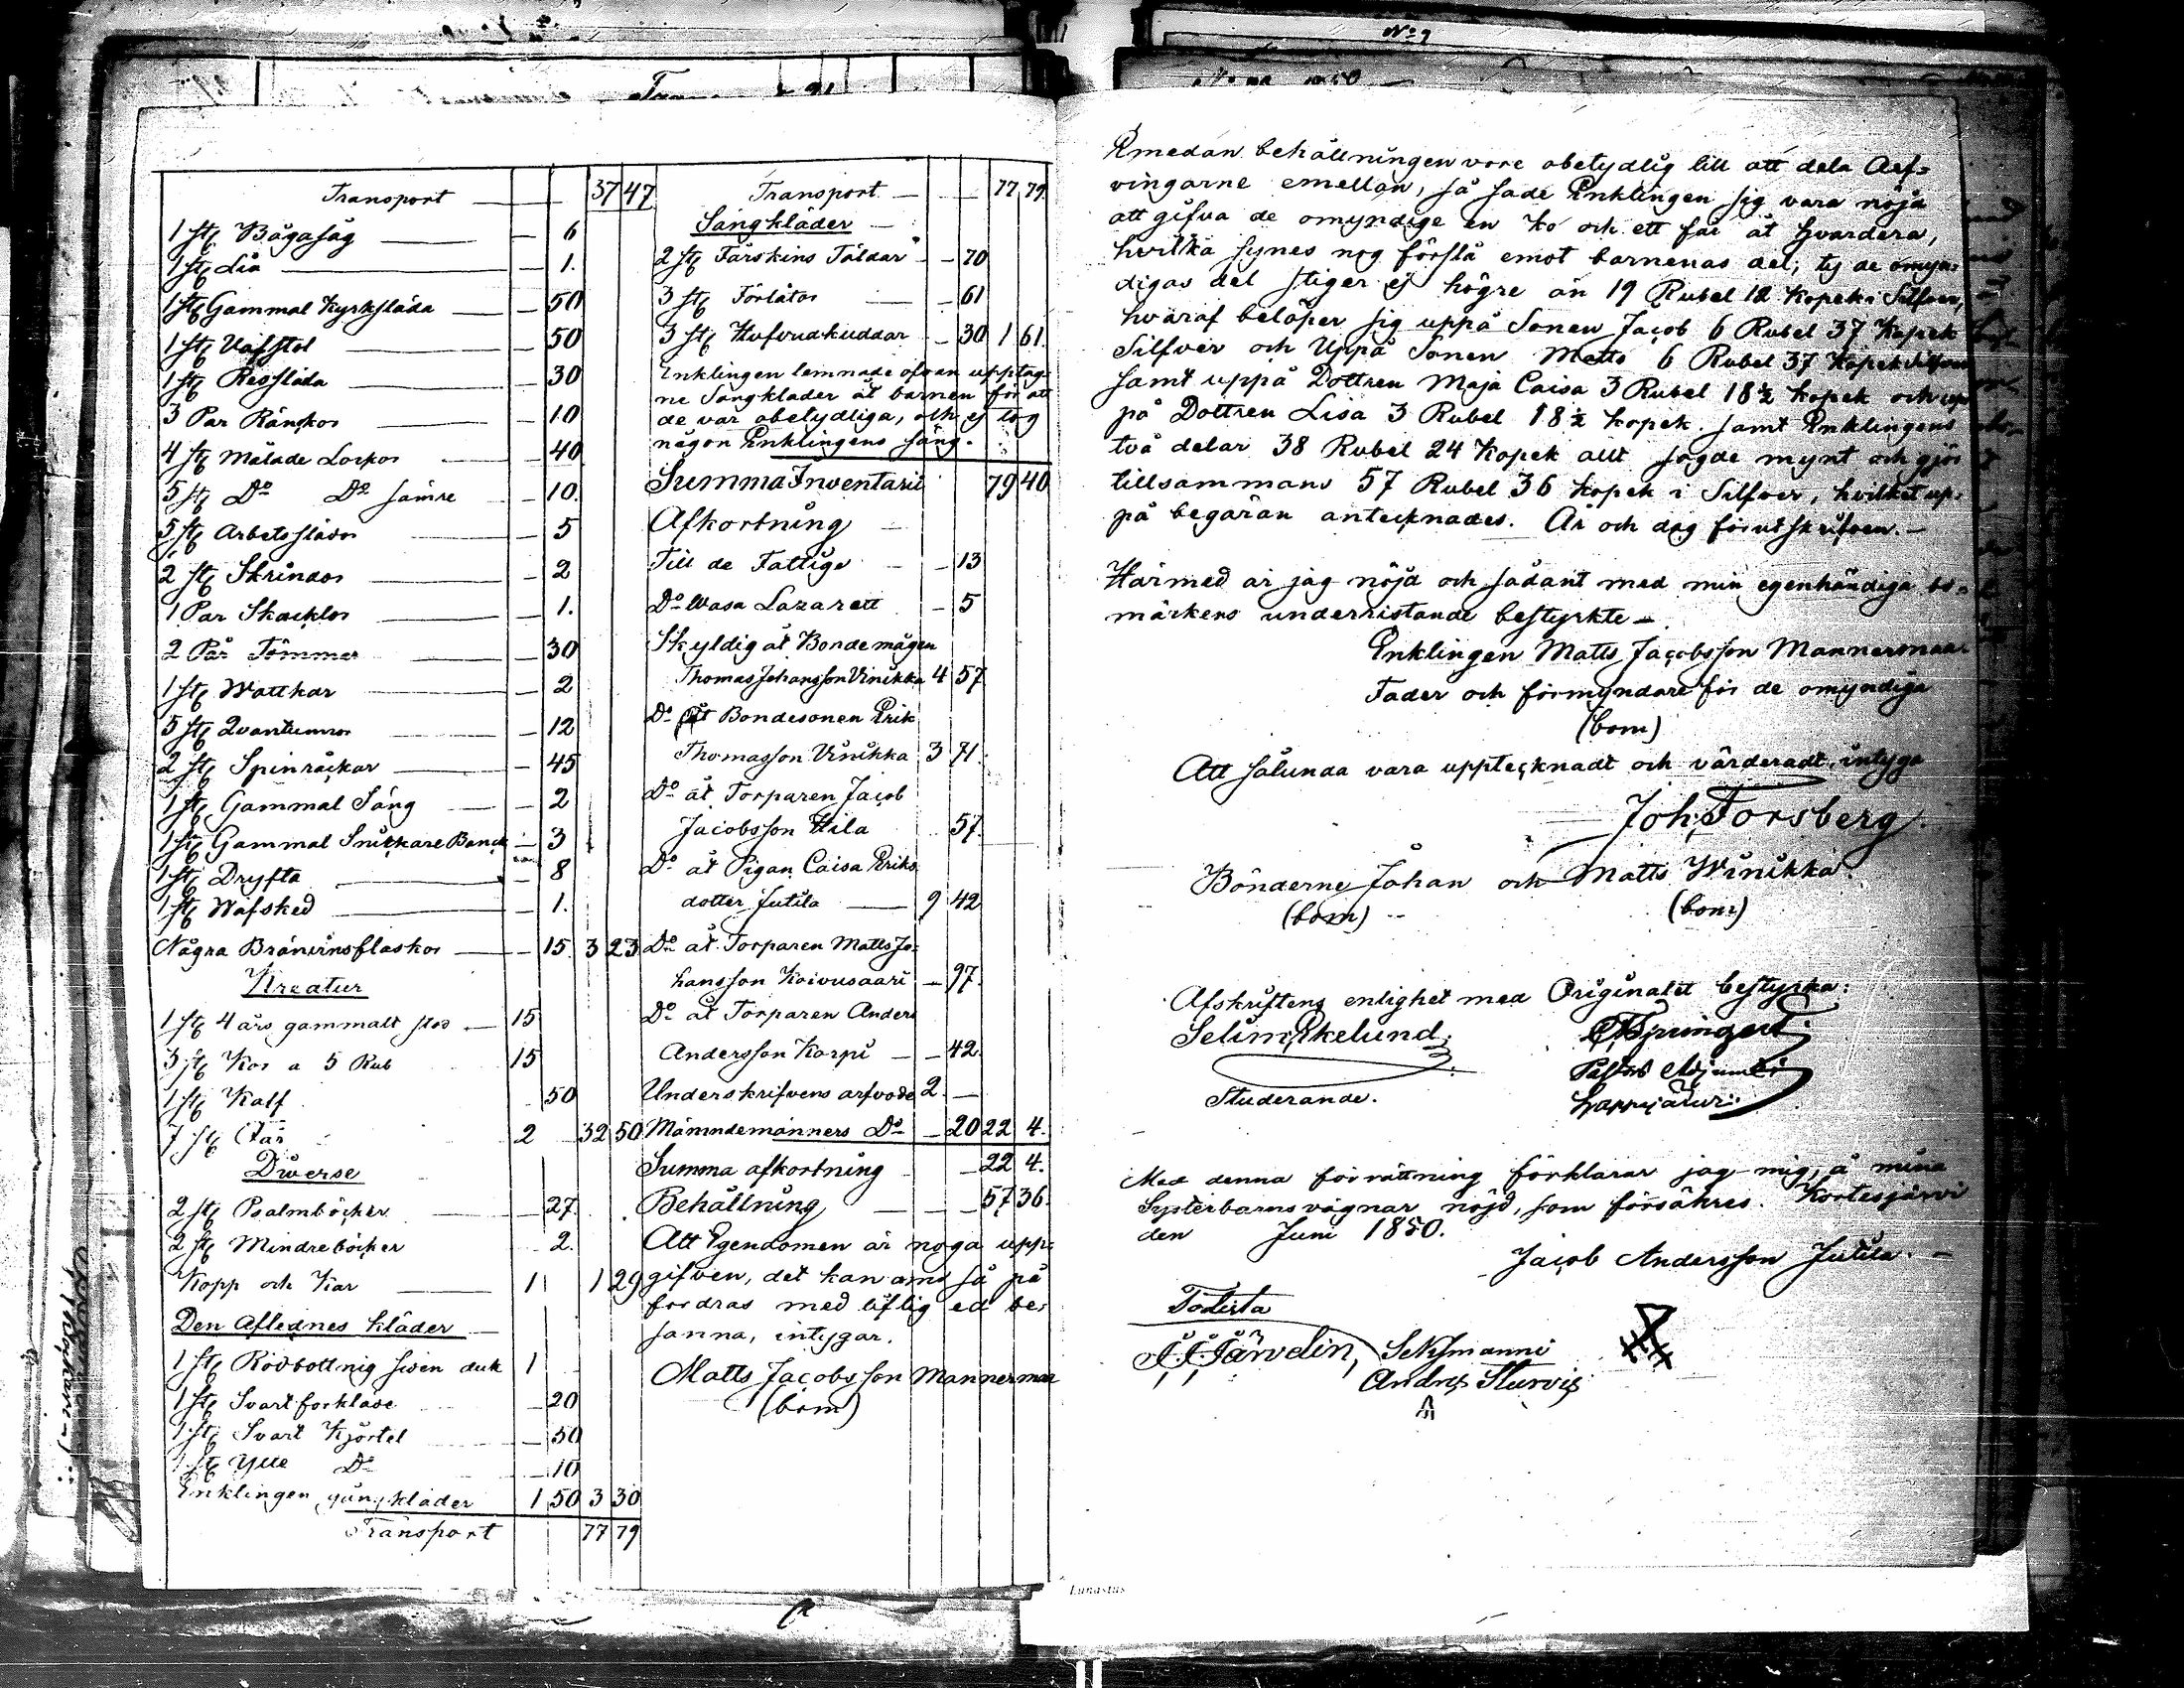 Transport 37 47
1 st Bågasåg — 6
1 st Lia — 1.
1 st Gammal Kyrksläda — 50
1 st Väfstol — 50
1 st Ressläda — 30
3 Par Ränkor — 10
4 st målade Lorkor — 40
5 st Do Do sämre — 10.
5 st Arbetsslädor — 5
2 st Skrindor — 2
1 Par Skacklor — 1.
2 Par Tömmar — 30
1 st Wattkar — 2
5 st Qvantunnor — 12
2 st Spinråckar — 45
1 st Gammal Säng — 2
1 st Gammal Snickare Banck — 3
1 st Dryfta — 8
1 st Wäfsked — 1.
Några Bränvinsflaskor — 15. 3 23
Kreatur
1 st 4 års gammalt stod — 15
3 st Kor a 5 Rub 15
1 st Kalf 50
7 st Får 2 32 50
Diverse
2 st Psalmböcker — 27.
2 st Mindre böcker 2.
Kopp och Kar — 1 1 29
Den Aflednes kläder
1 st Rödbottnig siden duk 1
1 st Svart forkläde — 20
1 st Svart Kjortel — 50
1 st Ylle Do — 10
Enklingen gångkläder 1 50 3 30
Transport 77 79
Transport — 77 79.
Sängkläder
2 st Fårskins Fäldar — 70
3 st Förlåtor — 61
3 st Hufvudkuddar — 30 1 61.
Enklingen lemnade ofvan upptag-
ne Sängkläder åt barnen för att
de var obetydliga, och ej tog
någon Enklingens säng.
Summa Inventarii 79 40
Afkortning
Till de Fattige — 13
Do Wasa Lazarett — 5
Skyldig åt Bondemågen
Thomas Johansson Vinikka 4 57
Do åt Bondesonen Erik
Thomasson Vinikka 3 71.
Do åt Torparen Jacob
Jacobsson Hila 57.
Do åt Pigan Caisa Eriks
dotter Jutila — 9 42
Do åt Torparen Matts Jo-
hansson Koivusaari — 97.
Do åt Torparen Anders
Andersson Karpi — 42.
Underskrifvens arfvode 2 —
Mämndemänners Do — 20 22 4.
Summa afkortning — 22 4.
Behållning — 57 36.
Att Egendomen är noga upp-
gifven, det kan om så på
fordras med liflig ed be-
sanna, intygar.
Matts Jacobsson Mannermaa
(bom)
No 7
Emedan behållningen vore obetydlig till att dela Arf-
vingarne emellan, så sade Enklingen sig vara nöjd
att gifva de omyndige en ko och ett får åt hvardera,
hvilka synes nog förslå emot barnenas del; ty de omyn-
digas del stiger ej högre än 19 Rubel 12 kopek i Silfver,
hvaraf belöper sig uppå Sonen Jacob 6 Rubel 37 Kopek
Silfver och Uppå Sonen Matts 6 Rubel 37 Kopek Silfver
samt uppå Dottren Maja Caisa 3 Rubel 18½ kopek och up
på Dottren Lisa 3 Rubel 18½ kopek. samt Enklingens
två delar 38 Rubel 24 Kopek allt sagde mynt och gjör
tillsammans 57 Rubel 36 kopek i Silfver, hvilket up-
på begäran antecknades. År och dag förutskrifven. —
Härmed är jag nöjd och sådant med min egenhändiga bo-
märkens underristande bestyrkte —
Enklingen Matts Jacobsson Mannermaa
Fader och förmyndare för de omyndiga
(bom)
Att sålunda vara upptecknadt och värderadt, intyga
Joh. Forsberg
Bönderne Johan och Matts Winikka.
(bom) (bom)
Afskriftens enlighet med Originalet bestyrka:
Selim Ekelund.
Studerande.
Med denna förrättning förklarar jag mig, å mina
Systerbarns vägnar nöjd, som försäkres. Kortesjärvi
den Juni 1850.
Jacob Andersson Jutila. —
Todista
Järvelin,
Andres
Lunastus